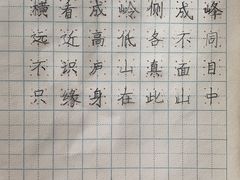 横看成岭侧成峰
远近高低各不同
不识庐山真面目
只缘身在此山中